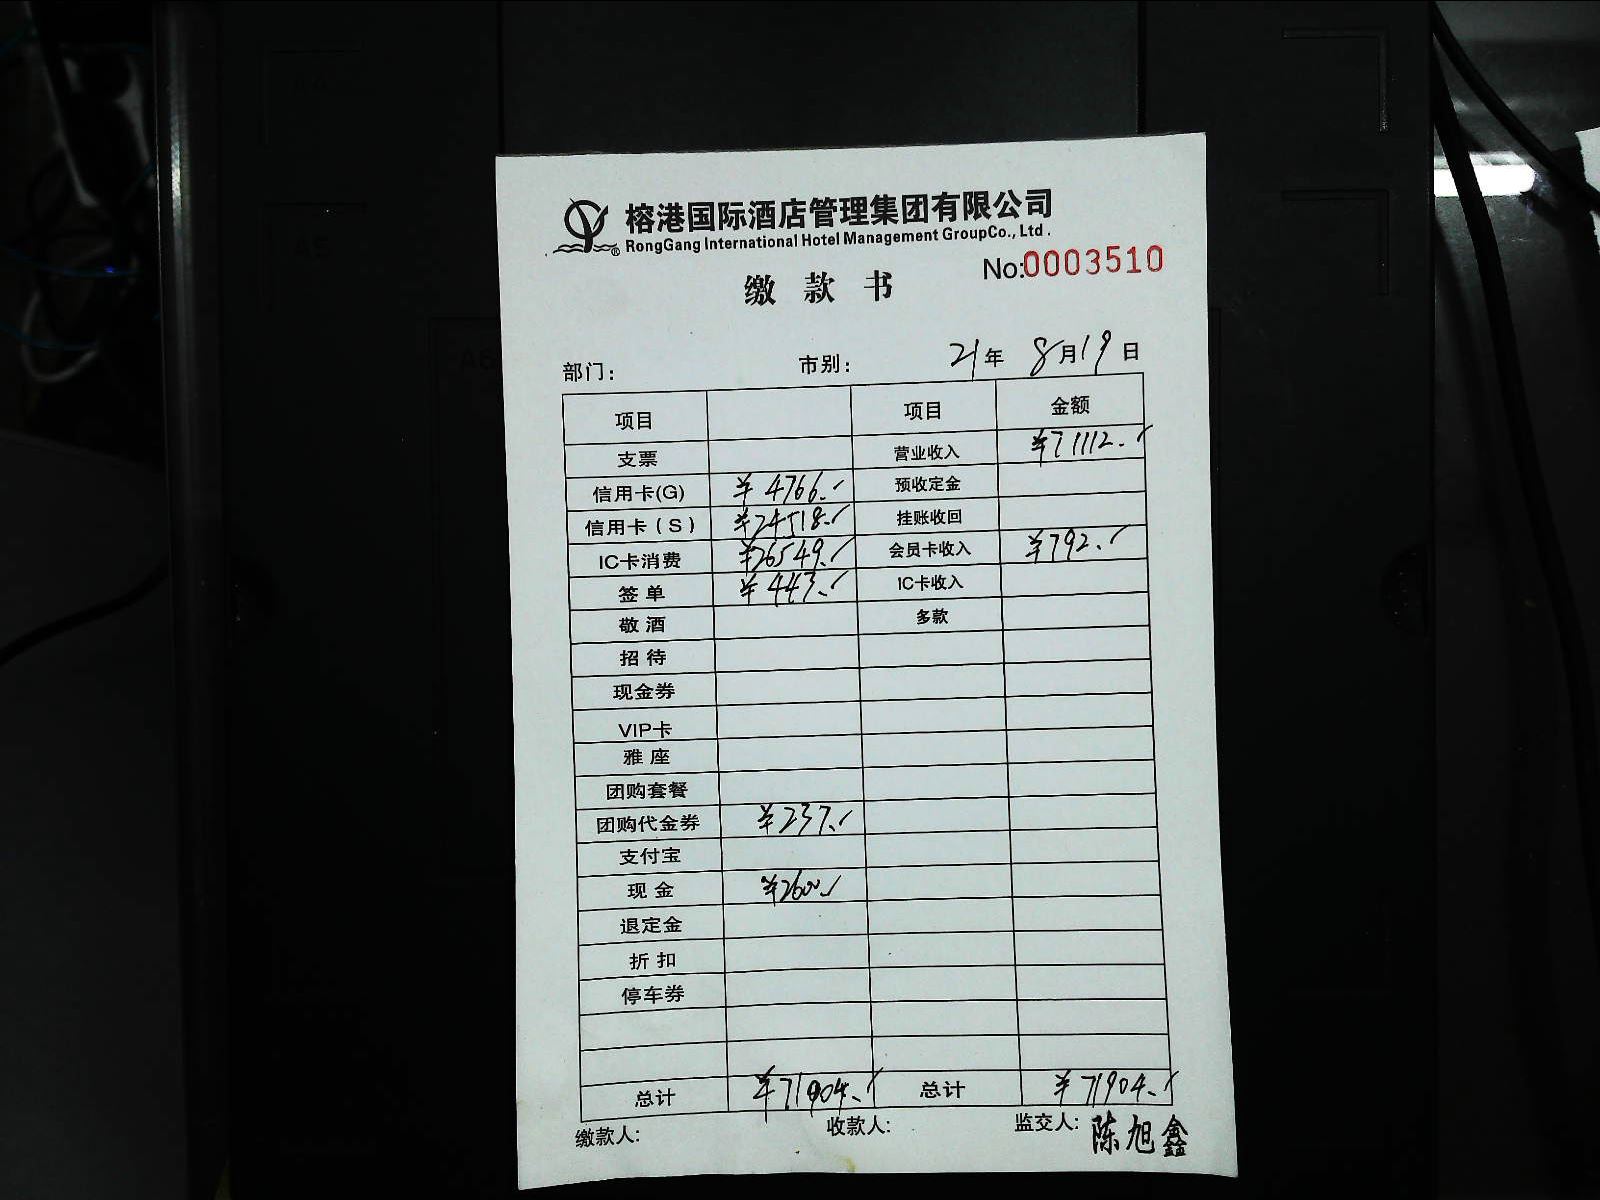 榕港国际酒店管理集团有限公司
RongGang International Hotel Management GroupCo., Ltd.
No:0003510
缴款书
部门： 市别： 21年 8月19日
项目 项目 金额
支票 营业收入 ¥71112.
信用卡(G) ¥4766. 预收定金
信用卡（S） ¥24518. 挂账收回
IC卡消费 ¥26549. 会员卡收入 ¥792.
签单 ¥443. IC卡收入
敬酒 多款
招待
现金券
VIP卡
雅座
团购套餐
团购代金券 ¥237.
支付宝
现金 ¥2600.
退定金
折扣
停车券
总计 ¥71904. 总计 ¥71904.
缴款人: 收款人: 监交人: 陈旭鑫